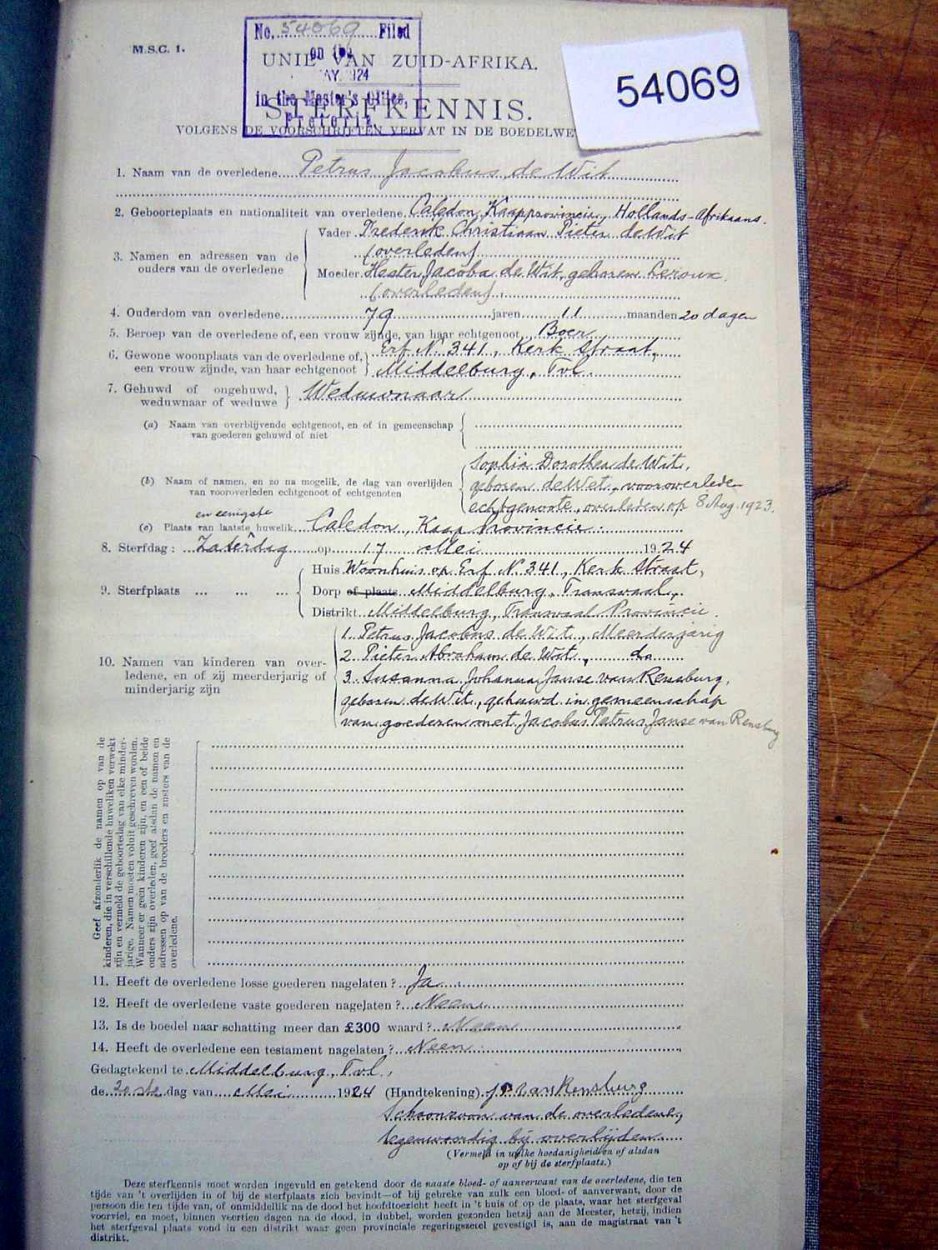 M.S.C. 1.
No. 54069 Filed
on the
MAY 1924
in the Master's Office,
Pretoria
54069
UNIE VAN ZUID-AFRIKA.
STERFKENNIS.
VOLGENS DE VOORSCHRIFTEN VERVAT IN DE BOEDELWE
1. Naam van de overledene Petrus Jacobus de Wit
2. Geboorteplaats en nationaliteit van overledene Caledon, Kaapprovincie, Hollands-Afrikaans.
3. Namen en adressen van de ouders van de overledene
Vader Frederik Christiaan Pieter de Wit
(overleden)
Moeder Hester Jacoba de Wit, geboren Leroux
(overleden)
4. Ouderdom van overledene 79 jaren 11 maanden 20 dagen
5. Beroep van de overledene of, een vrouw zijnde, van haar echtgenoot Boer
6. Gewone woonplaats van de overledene of, Erf No. 341, Kerk Straat,
een vrouw zijnde, van haar echtgenoot Middelburg, Tvl.
7. Gehuwd of ongehuwd, weduwnaar of weduwe Weduwnaar
(a) Naam van overblijvende echtgenoot, en of in gemeenschap
van goederen gehuwd of niet
(b) Naam of namen, en zo na mogelik, de dag van overlijden
van vooroverleden echtgenoot of echtgenoten
Sophia Dorothea de Wit,
geboren de Wet, vooroverleden
echtgenoote, overleden op 8 Aug. 1923.
en eenigste
(c) Plaats van laatste huwelik Caledon, Kaap Provincie.
8. Sterfdag: Zaterdag op 17 Mei 1924
9. Sterfplaats ... ... ...
Huis Woonhuis op Erf No. 341, Kerk Straat,
Dorp of plaats Middelburg, Transvaal,
Distrikt Middelburg, Transvaal Provincie.
10. Namen van kinderen van over-
ledene, en of zij meerderjarig of
minderjarig zijn
1. Petrus Jacobus de Wit, Meerderjarig
2. Pieter Abraham de Wit, do
3. Susanna Johanna Janse van Rensburg,
geboren de Wit, gehuwd in gemeenschap
van goederen met Jacobus Petrus Janse van Rensburg
Geef afzonderlik de namen op van de
kinderen, die in verschillende huweliken verwekt
zijn en vermeld de geboortedag van elke minder-
jarige. Namen moeten voluit geschreven worden.
Wanneer er geen kinderen zijn, en een of beide
ouders zijn overleden, geef alsdan de namen en
adressen op van de broeders en zusters van de
overledene.
11. Heeft de overledene losse goederen nagelaten? Ja
12. Heeft de overledene vaste goederen nagelaten? Neen
13. Is de boedel naar schatting meer dan £300 waard? Neen
14. Heeft de overledene een testament nagelaten? Neen
Gedagtekend te Middelburg, Tvl.,
de 20ste dag van Mei 1924 (Handtekening) van Rensburg
Schoonzoon van de overledene,
tegenwoordig bij overlijden
(Vermeld in welke hoedanigheid en of alsdan
op of bij de sterfplaats.)
Deze sterfkennis moet worden ingevuld en getekend door de naaste bloed- of aanverwant van de overledene, die ten
tijde van 't overlijden in of bij de sterfplaats zich bevindt—of bij gebreke van zulk een bloed- of aanverwant, door de
persoon die ten tijde van, of onmiddellik na de dood het hoofdtoezicht heeft in 't huis of op de plaats, waar het sterfgeval
voorviel, en moet, binnen veertien dagen na de dood, in dubbel, worden gezonden hetzij aan de Meester, hetzij, indien
het sterfgeval plaats vond in een distrikt waar geen provinciale regeringszetel gevestigd is, aan de magistraat van 't
distrikt.